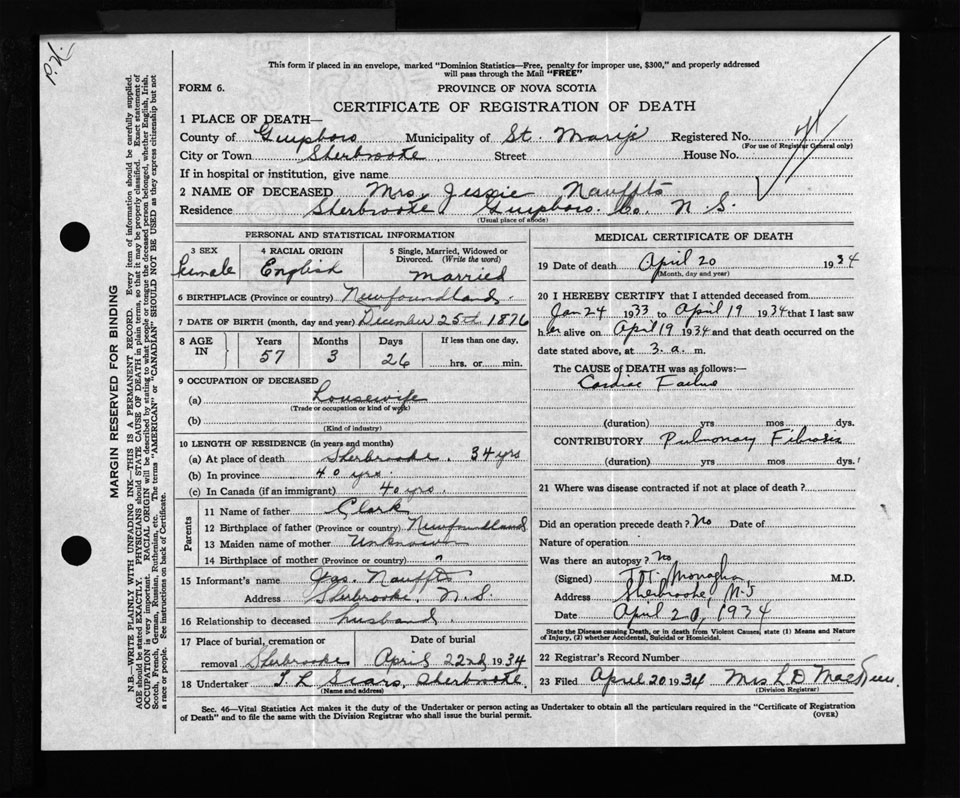 P.N.
This form if placed in an envelope, marked "Dominion Statistics—Free, penalty for improper use, $300," and properly addressed
will pass through the Mail "FREE"
FORM 6.
PROVINCE OF NOVA SCOTIA
CERTIFICATE OF REGISTRATION OF DEATH
1 PLACE OF DEATH—
County of Guysboro Municipality of St. Mary's Registered No.
(For use of Registrar General only)
City or Town Sherbrooke Street House No.
If in hospital or institution, give name
2 NAME OF DECEASED Mrs. Jessie Nauffts
Residence Sherbrooke Guysboro. Co. N.S.
(Usual place of abode)
PERSONAL AND STATISTICAL INFORMATION
3 SEX 4 RACIAL ORIGIN 5 Single, Married, Widowed or
Divorced. (Write the word)
female English married
6 BIRTHPLACE (Province or country) Newfoundland.
7 DATE OF BIRTH (month, day and year) December 25th 1876
8 AGE IN Years Months Days If less than one day,
57 3 26 hrs. or min.
9 OCCUPATION OF DECEASED
(a) Housewife
(Trade or occupation or kind of work)
(b)
(Kind of industry)
10 LENGTH OF RESIDENCE (in years and months)
(a) At place of death Sherbrooke. 34 yrs
(b) In province 40 yrs.
(c) In Canada (if an immigrant) 40 yrs.
Parents
11 Name of father Clark
12 Birthplace of father (Province or country) Newfoundland
13 Maiden name of mother Unknown
14 Birthplace of mother (Province or country) "
15 Informant's name Jas. Nauffts
Address Sherbrooke, N.S.
16 Relationship to deceased husband
17 Place of burial, cremation or Date of burial
removal Sherbrooke April 22nd 1934
18 Undertaker Sears, Sherbrooke.
(Name and address)
MEDICAL CERTIFICATE OF DEATH
19 Date of death April 20 1934
(Month, day and year)
20 I HEREBY CERTIFY that I attended deceased from
Jan 24 1933 to April 19 1934 that I last saw
her alive on April 19 1934 and that death occurred on the
date stated above, at 3. a. m.
The CAUSE OF DEATH was as follows:—
Cardiac Failure
(duration) yrs mos dys.
CONTRIBUTORY Pulmonary Fibrosis
(duration) yrs mos dys.
21 Where was disease contracted if not at place of death?
Did an operation precede death? No Date of
Nature of operation
Was there an autopsy? No
(Signed) Monaghan, M.D.
Address Sherbrooke, N.S
Date April 20, 1934
State the Disease causing Death, or in death from Violent Causes, state (1) Means and Nature
of Injury, (2) whether Accidental, Suicidal or Homicidal.
22 Registrar's Record Number
23 Filed April 20 1934 Mrs L D
(Division Registrar)
Sec. 46—Vital Statistics Act makes it the duty of the Undertaker or person acting as Undertaker to obtain all the particulars required in the "Certificate of Registration
of Death" and to file the same with the Division Registrar who shall issue the burial permit.
(OVER)
MARGIN RESERVED FOR BINDING
N.B.—WRITE PLAINLY WITH UNFADING INK—THIS IS A PERMANENT RECORD. Every item of information should be carefully supplied.
AGE should be stated EXACTLY. PHYSICIANS should STATE CAUSE OF DEATH in plain terms, so that it may be properly classified. Exact statement of
OCCUPATION is very important. RACIAL ORIGIN will be described by stating to what people or tongue the deceased person belonged, whether English, Irish,
Scotch, French, German, Russian, Ruthenian, etc. The terms "AMERICAN" or "CANADIAN" SHOULD NOT BE USED as they express citizenship but not
a race or people. See instructions on back of Certificate.